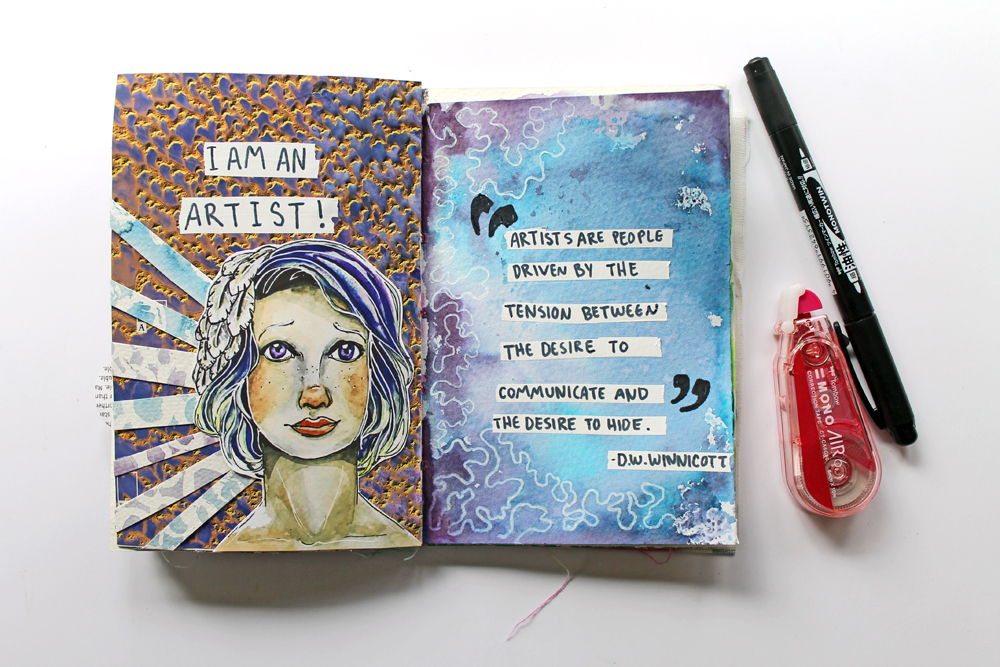 I AM AN
ARTIST!
A
“
ARTISTS ARE PEOPLE
DRIVEN BY THE
TENSION BETWEEN
THE DESIRE TO
COMMUNICATE AND
THE DESIRE TO HIDE.
”
-D.W. WINNICOTT
MONOTWIN
Tombow
MONO AIR
CORRECTION TAPE